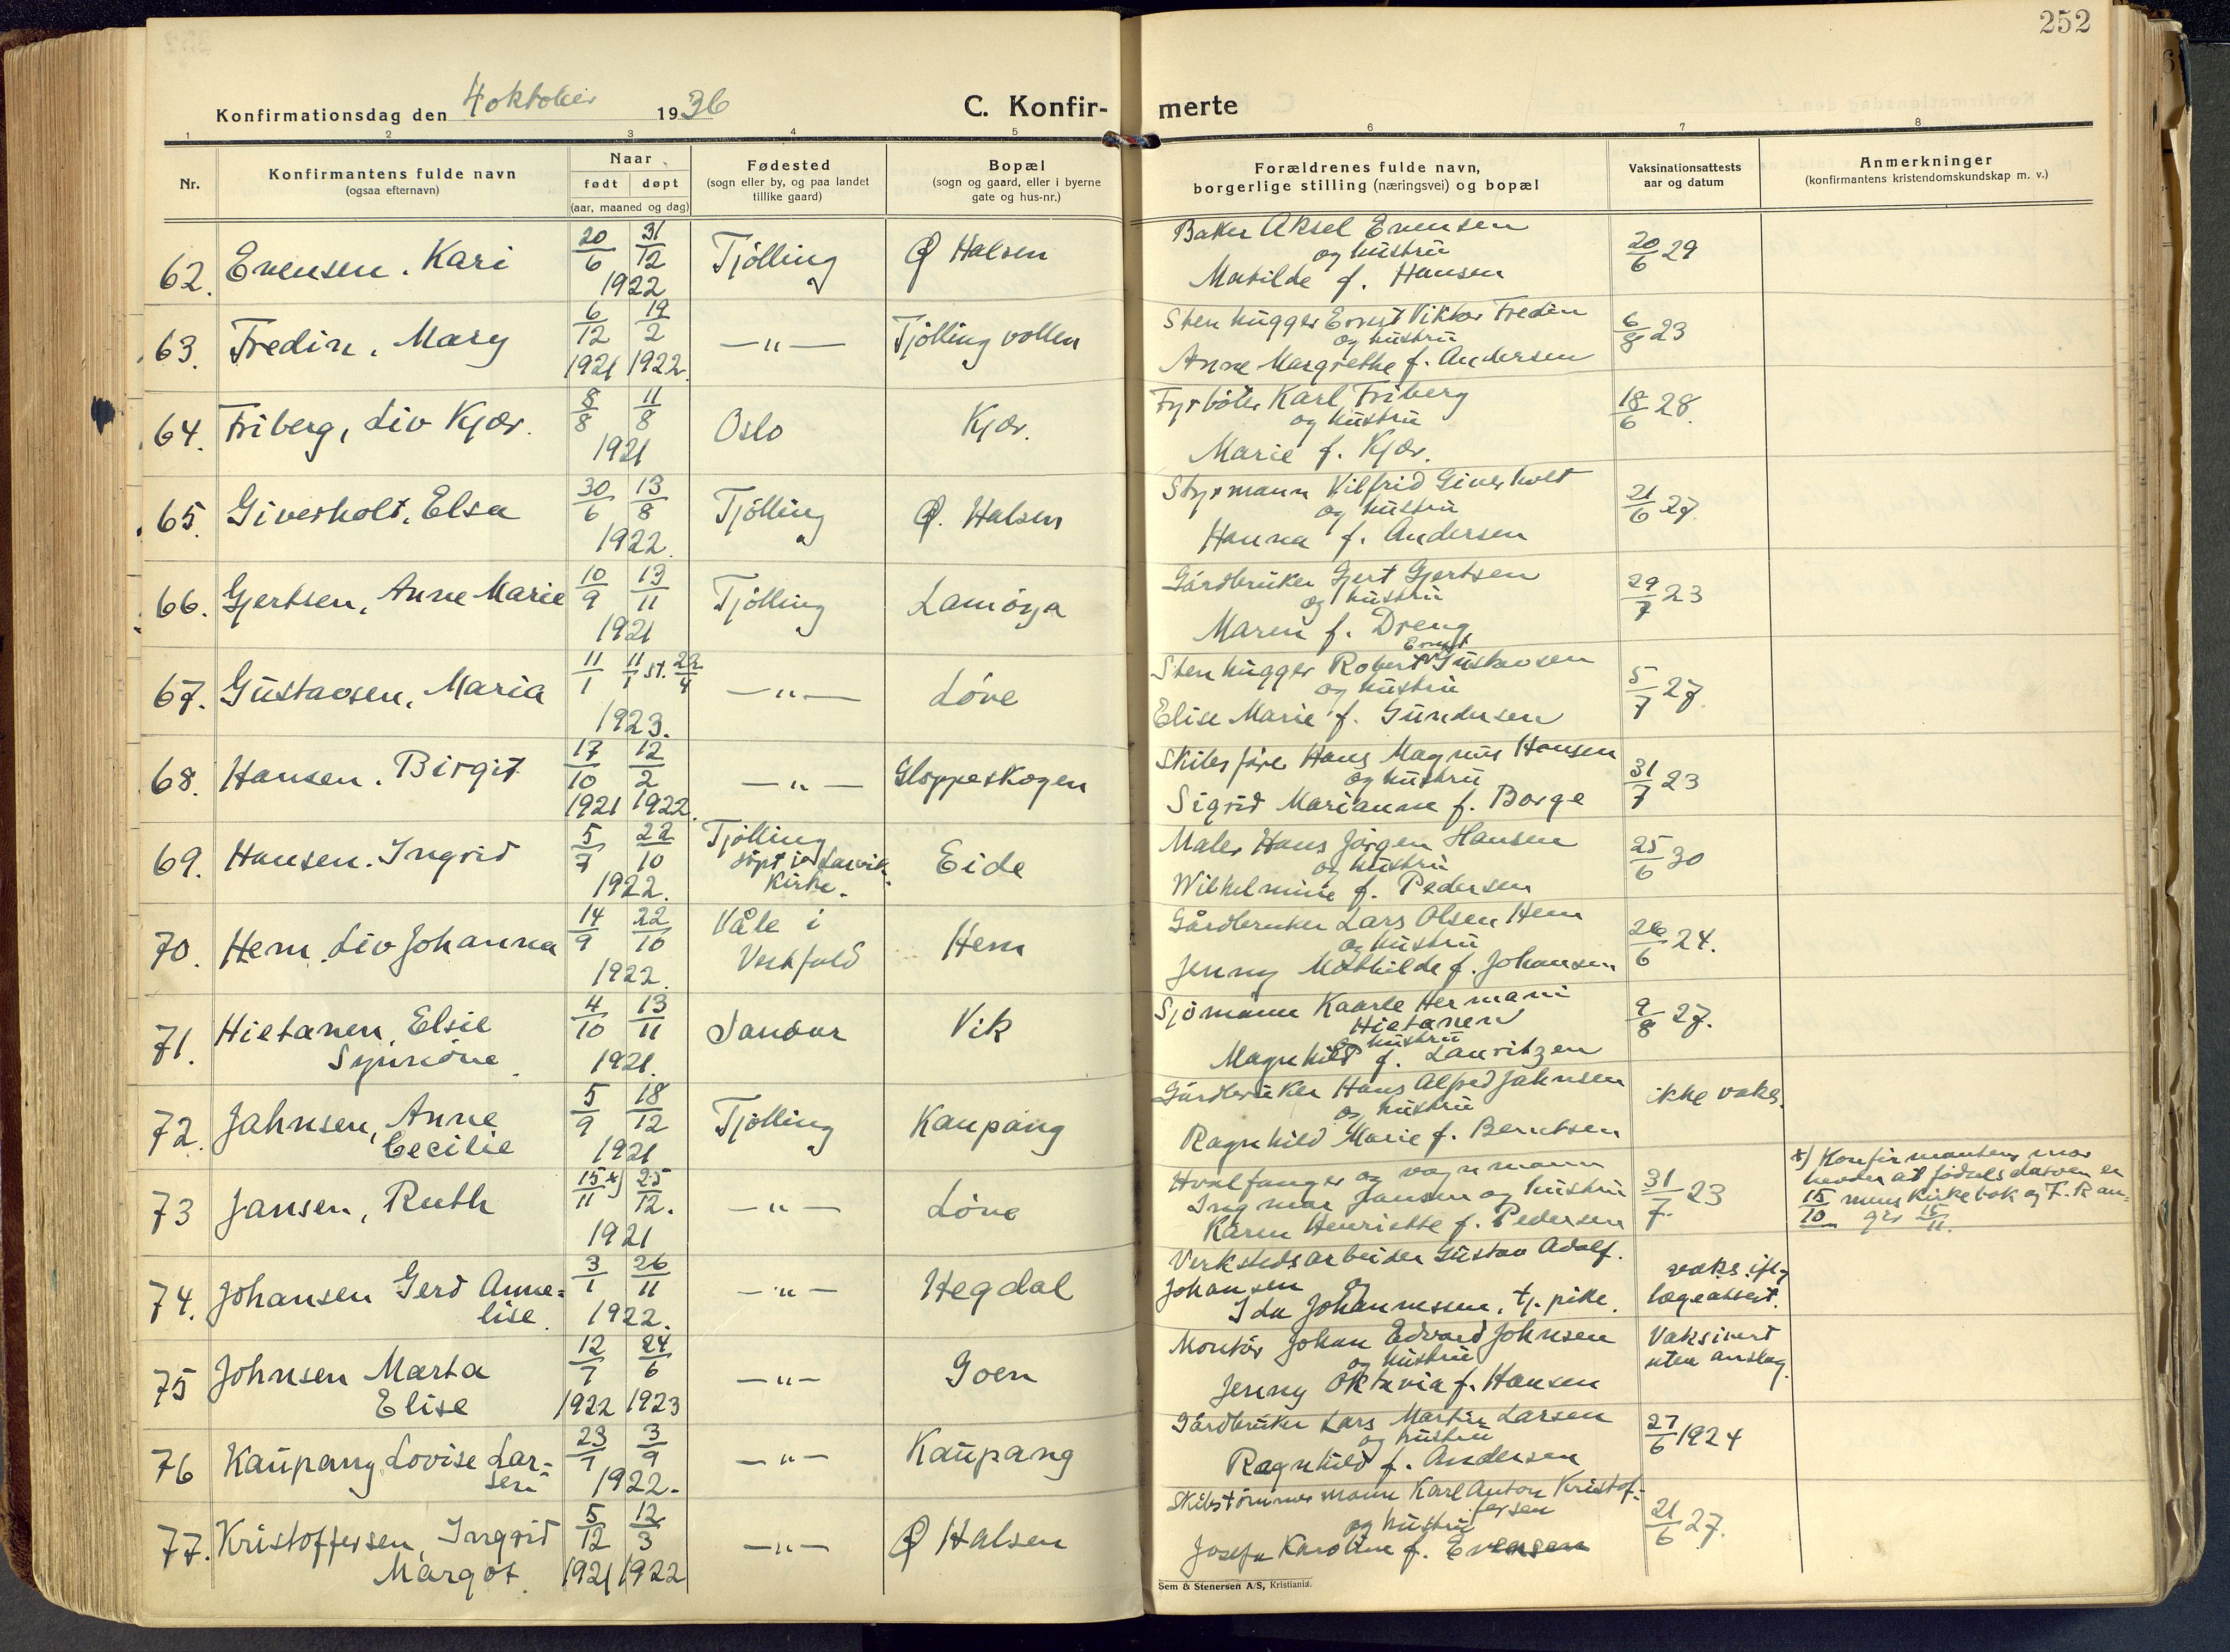 252
Konfirmationsdag den 4 oktober 1936
C. Konfir-
merte
1 2 3 4 5 6 7 8
Nr.
Konfirmantens fulde navn
(ogsaa efternavn)
Naar
født døpt
(aar, maaned og dag)
Fødested
(sogn eller by, og paa landet
tillike gaard)
Bopæl
(sogn og gaard, eller i byerne
gate og hus-nr.)
Forældrenes fulde navn,
borgerlige stilling (næringsvei) og bopæl
Vaksinationsattests
aar og datum
Anmerkninger
(konfirmantens kristendomskundskap m. v.)
62. Evensen, Kari 20/6 31/12 1922 Tjölling Ø Halsen
Baker Aksel Evensen
og hustru
Matilde f. Hansen
20/6 29
63. Fredin, Mary 6/12 1921 19/2 1922. —"— Tjölling vollen
Stenhugger Ernst Viktor Fredin
og hustru
Anne Margrethe f. Andersen
6/8 23
64. Friberg, Liv Kjær. 8/8 11/8 1921 Oslo Kjær.
Fyrböter Karl Friberg
og hustru
Marie f. Kjær.
18/6 28.
65. Giverholt, Elsa 30/6 13/8 1922. Tjölling Ø. Halsen
Styrmann Vilfrid Giverholt
og hustru
Hanna f. Andersen
21/6 27.
66. Gjertsen, Anne Marie 10/9 13/11 1921 Tjölling Lamöya
Gårdbruker Gjert Gjertsen
og hustru
Maren f. Dreng
29/7 23
67. Gustavsen, Maria 11/1 11/1 st. 22/4 1923. —"— Löve
Ernst
Stenhugger Robert Gustavsen
og hustru
Elise Marie f. Gundersen
5/7 27.
68. Hansen, Birgit 17/10 1921 12/2 1922. —"— Gloppeskogen
Skibsförer Hans Magnus Hansen
og hustru
Sigrid Marianne f. Borge
31/7 23
69. Hansen, Ingrid 5/7 22/10 1922. Tjölling
döpt i Larvik
Kirke. Eide
Maler Hans Jörgen Hansen
og hustru
Wilhelmine f. Pedersen
25/6 30
70. Hem, Liv Johanna 14/9 22/10 1922. Våle i
Vestfold Hem
Gårdbruker Lars Olsen Hem
og hustru
Jenny Mathilde f. Johansen
26/6 24.
71. Hietanen, Elsie
Synnöne. 4/10 13/11 1921. Sandar Vik
Sjömann Kaarle Hermani
Hietanen
og hustru
Magnhild f. Lauritzen
9/8 27.
72. Jahnsen, Anne
Cecilie 5/9 18/12 1921 Tjölling Kaupang
Gårdbruker Hans Alfred Jahnsen
og hustru
Ragnhild Marie f. Berntsen
ikke vaks.
73 Jansen, Ruth 15/11 x) 25/12. 1921 —"— Löve
Hvalfanger og vognmann
Ingmar Jansen og hustru
Karen Henriette f. Pedersen
31/7. 23
x) Konfirmantens mor
hevder at födselsdatoen er
15/10 mens kirkebok og F. R an-
gir 15/11.
74. Johansen Gerd Anne-
lise. 3/1 26/11 1922. —"— Hegdal
Verkstedsarbeider Gustav Adolf.
Johansen og
Ida Johannessen, tj. pike.
vaks. iflg
lægeattest.
75 Johnsen Marta
Elise 12/7 1922 24/6 1923 —"— Goen
Montör Johan Edvard Johnsen
og hustru
Jenny Oktavia f. Hansen
Vaksinert
uten anslag.
76 Kaupang Lovise Lar-
sen 23/1 3/9 1922. —"— Kaupang
Gårdbruker Lars Martin Larsen
og hustru
Ragnhild f. Andersen
27/6 1924
77. Kristoffersen, Ingrid
Margot. 5/12 1921 12/3 1922 —"— Ø Halsen
Skibstömmermann Karl Anton Kristof-
fersen
og hustru
Josefa Karoline f. Evensen
21/6 27.
Sem & Stenersen A/S, Kristiania.